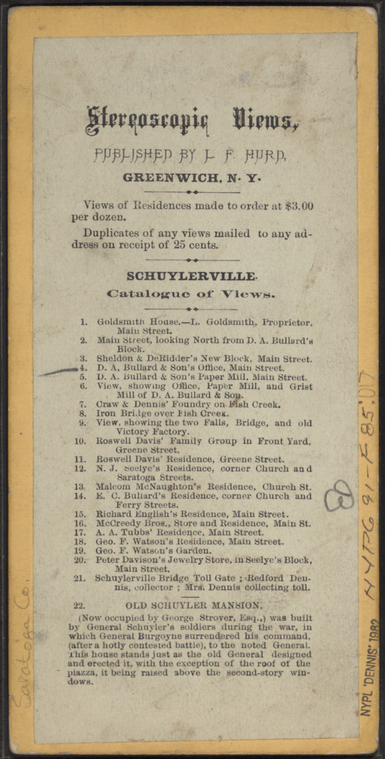 Stereoscopic Views,
PUBLISHED BY L. F. HURD,
GREENWICH, N. Y.
Views of Residences made to order at $3.00
per dozen.
Duplicates of any views mailed to any ad-
dress on receipt of 25 cents.
SCHUYLERVILLE.
Catalogue of Views.
1. Goldsmith House.—L. Goldsmith, Proprietor,
Main Street.
2. Main Street, looking North from D. A. Bullard's
Block.
3. Sheldon & DeRidder's New Block, Main Street.
4. D. A. Bullard & Son's Office, Main Street.
5. D. A. Bullard & Son's Paper Mill, Main Street.
6. View, showing Office, Paper Mill, and Grist
Mill of D. A. Bullard & Son.
7. Craw & Dennis' Foundry on Fish Creek.
8. Iron Bridge over Fish Creek.
9. View, showing the two Falls, Bridge, and old
Victory Factory.
10. Roswell Davis' Family Group in Front Yard,
Greene Street.
11. Roswell Davis' Residence, Greene Street.
12. N. J. Seelye's Residence, corner Church and
Saratoga Streets.
13. Malcom McNaughton's Residence, Church St.
14. E. C. Bullard's Residence, corner Church and
Ferry Streets.
15. Richard English's Residence, Main Street.
16. McCreedy Bros., Store and Residence, Main St.
17. A. A. Tubbs' Residence, Main Street.
18. Geo. F. Watson's Residence, Main Street.
19. Geo. F. Watson's Garden.
20. Peter Davison's Jewelry Store, in Seelye's Block,
Main Street.
21. Schuylerville Bridge Toll Gate ; Redford Den-
nis, collector ; Mrs. Dennis collecting toll.
22. OLD SCHUYLER MANSION,
(Now occupied by George Strover, Esq.,) was built
by General Schuyler's soldiers during the war, in
which General Burgoyne surrendered his command,
(after a hotly contested battle), to the noted General.
This house stands just as the old General designed
and erected it, with the exception of the roof of the
piazza, it being raised above the second-story win-
dows.
Saratoga Co.
NYPG 91-F85
NYPL 'DENNIS' 1982